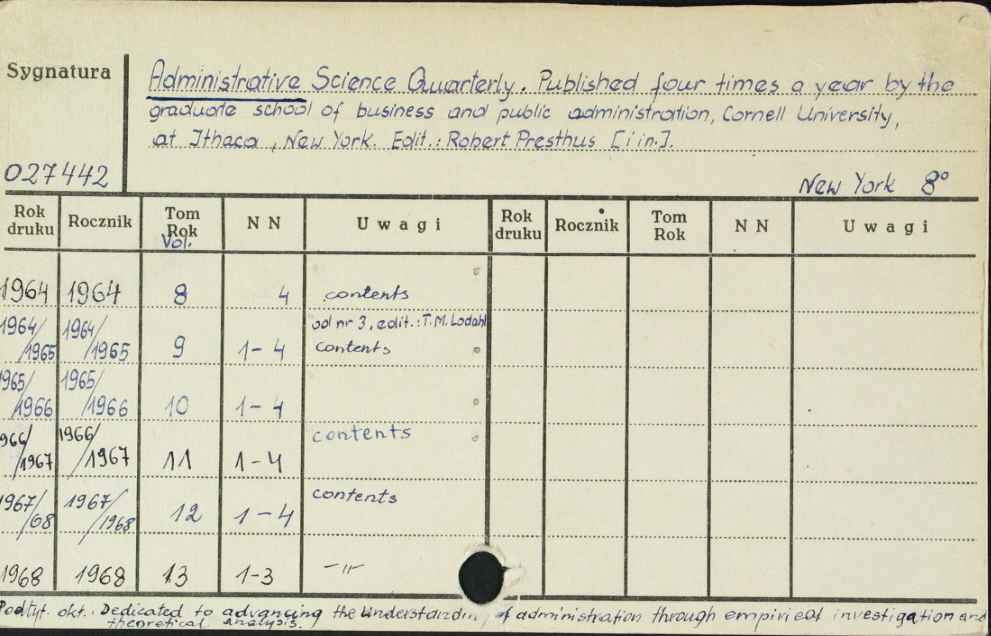 Sygnatura
Administrative Science Quarterly. Published four times a year by the
graduate school of business and public administration, Cornell University,
at Ithaca, New York. Edit.: Robert Presthus [i in.].
027442
New York 8°
Rok druku Rocznik Tom Rok Vol. NN Uwagi Rok druku Rocznik Tom Rok NN Uwagi
1964 1964 8 4 contents
od nr 3, edit.: T.M. Lodahl
1964/1965 1964/1965 9 1-4 contents
1965/1966 1965/1966 10 1-4
1966/1967 1966/1967 11 1-4 contents
1967/68 1967/1968 12 1-4 contents
1968 1968 13 1-3 -"-
Podtyt. okł. Dedicated to advancing the Understanding of administration through empirical investigation and
theoretical analysis.